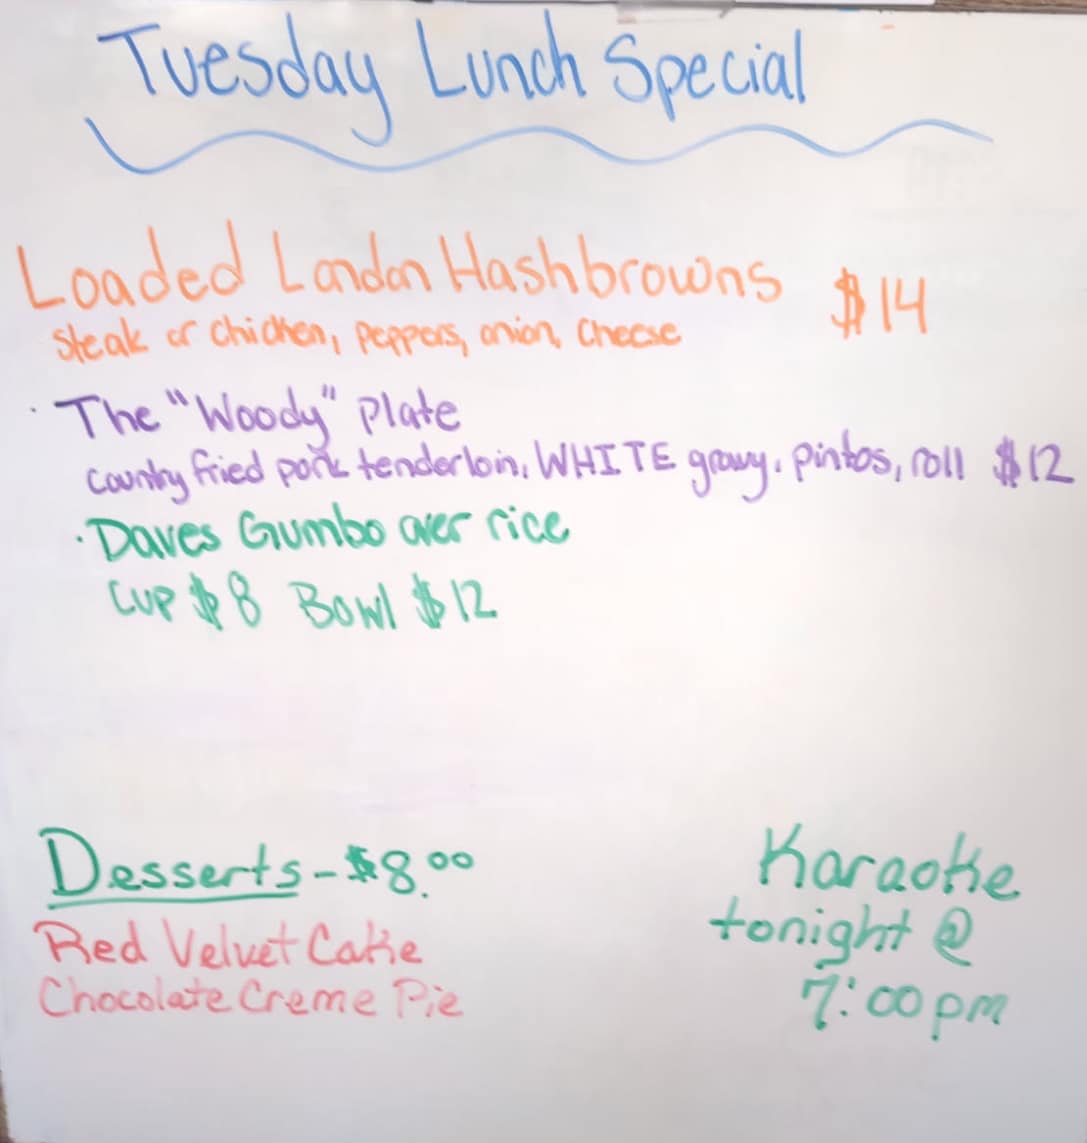 Tuesday Lunch Special
Loaded London Hashbrowns $14
Steak or Chicken, Peppers, onion, Cheese
· The "Woody" Plate
Country fried pork tenderloin, WHITE gravy, pintos, roll $12
· Daves Gumbo over rice
Cup $8 Bowl $12
Desserts - $8.00
Red Velvet Cake
Chocolate Creme Pie
Karaoke
tonight @
7:00 pm